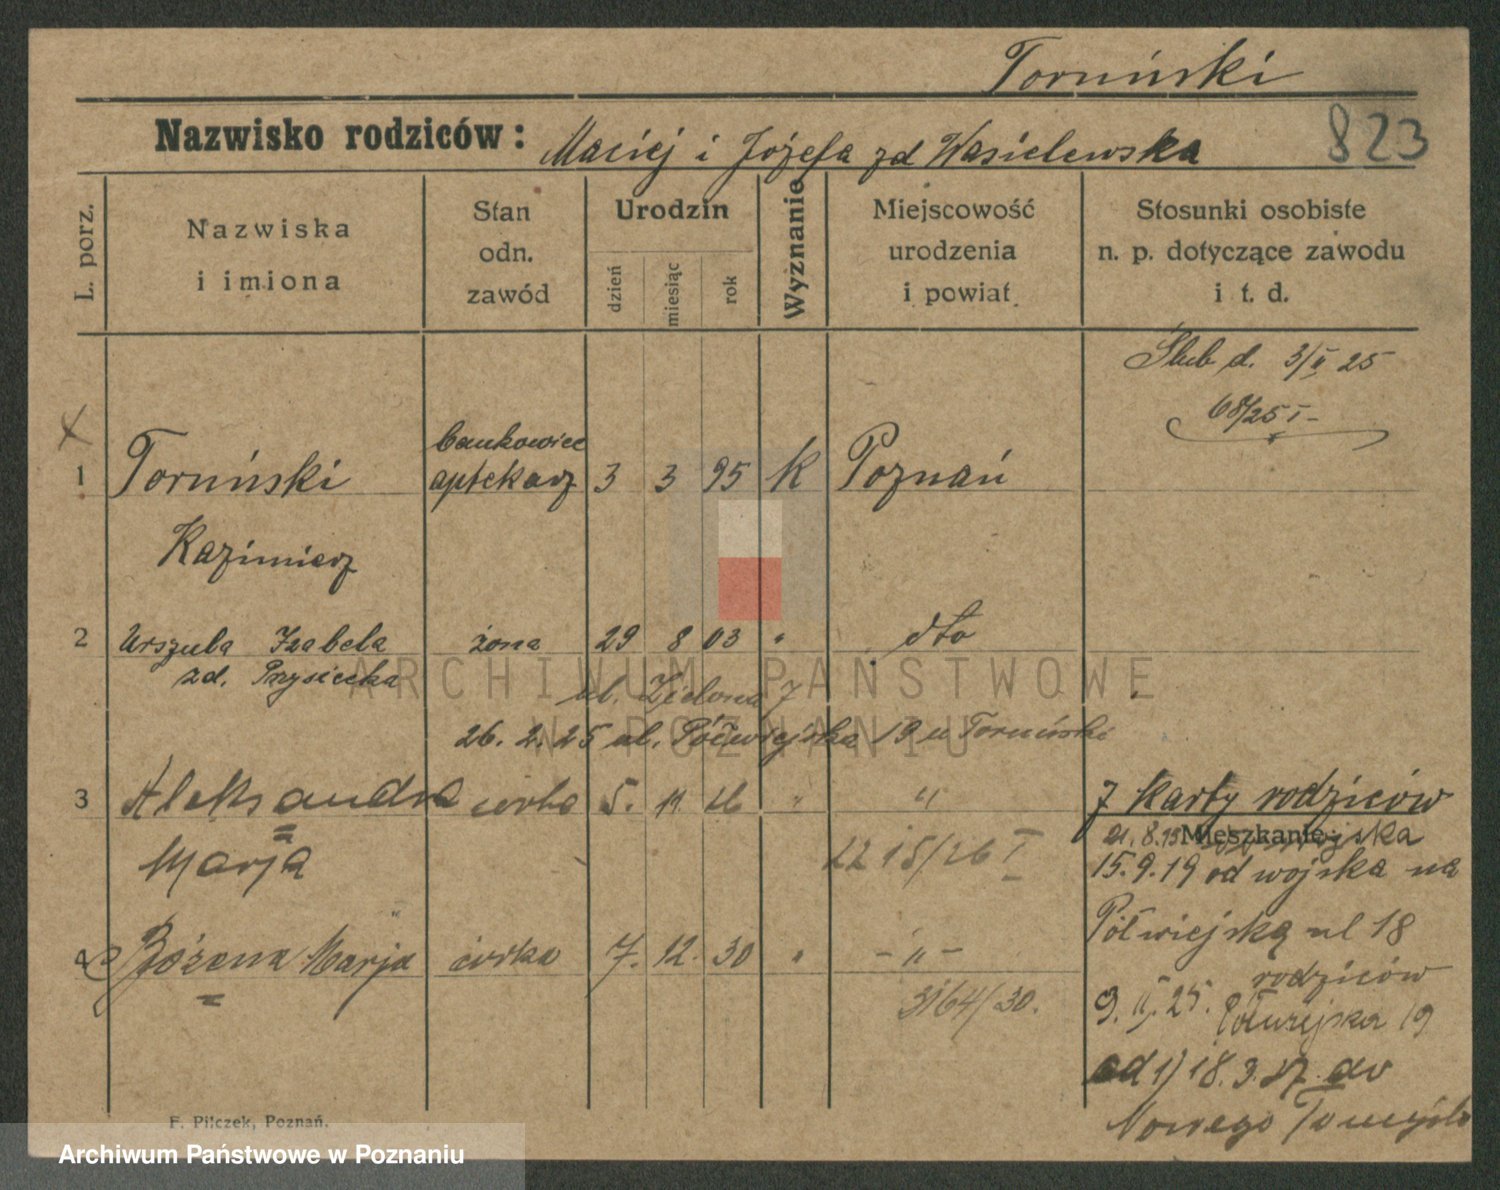 Toruński
Nazwisko rodziców: Maciej i Józefa zd Wasielewska
823
L. porz.
Nazwiska i imiona
Stan odn. zawód
Urodzin
dzień
miesiąc
rok
Wyznanie
Miejscowość urodzenia i powiat
Stosunki osobiste n. p. dotyczące zawodu i t. d.
Ślub d. 3/II 25
68/25 I
bankowiec
1 Toruński aptekarz 3 3 95 k Poznań
Kazimierz
2 Urszula Izabela żona 29 8 03 " dto
zd. Przysiecka
ul. Zielona 7
26. 2. 25 ul. Półwiejska 19 u Toruński
3 Aleksandra córka 5. 11 26 " "
Marja
2215/26 I
7 karty rodziców
Mieszkanie
21. 8. 19
15. 9. 19 od wojska na
Półwiejską ul 18
4 Bożena Marja córka 7. 12. 30 " - " -
3164/30.
rodziców
9. II. 25. Półwiejska 19
od 1) 18. 3. 37 do
Nowego Tomyśla
F. Pilczek, Poznań.
ARCHIWUM PAŃSTWOWE
W POZNANIU
Archiwum Państwowe w Poznaniu